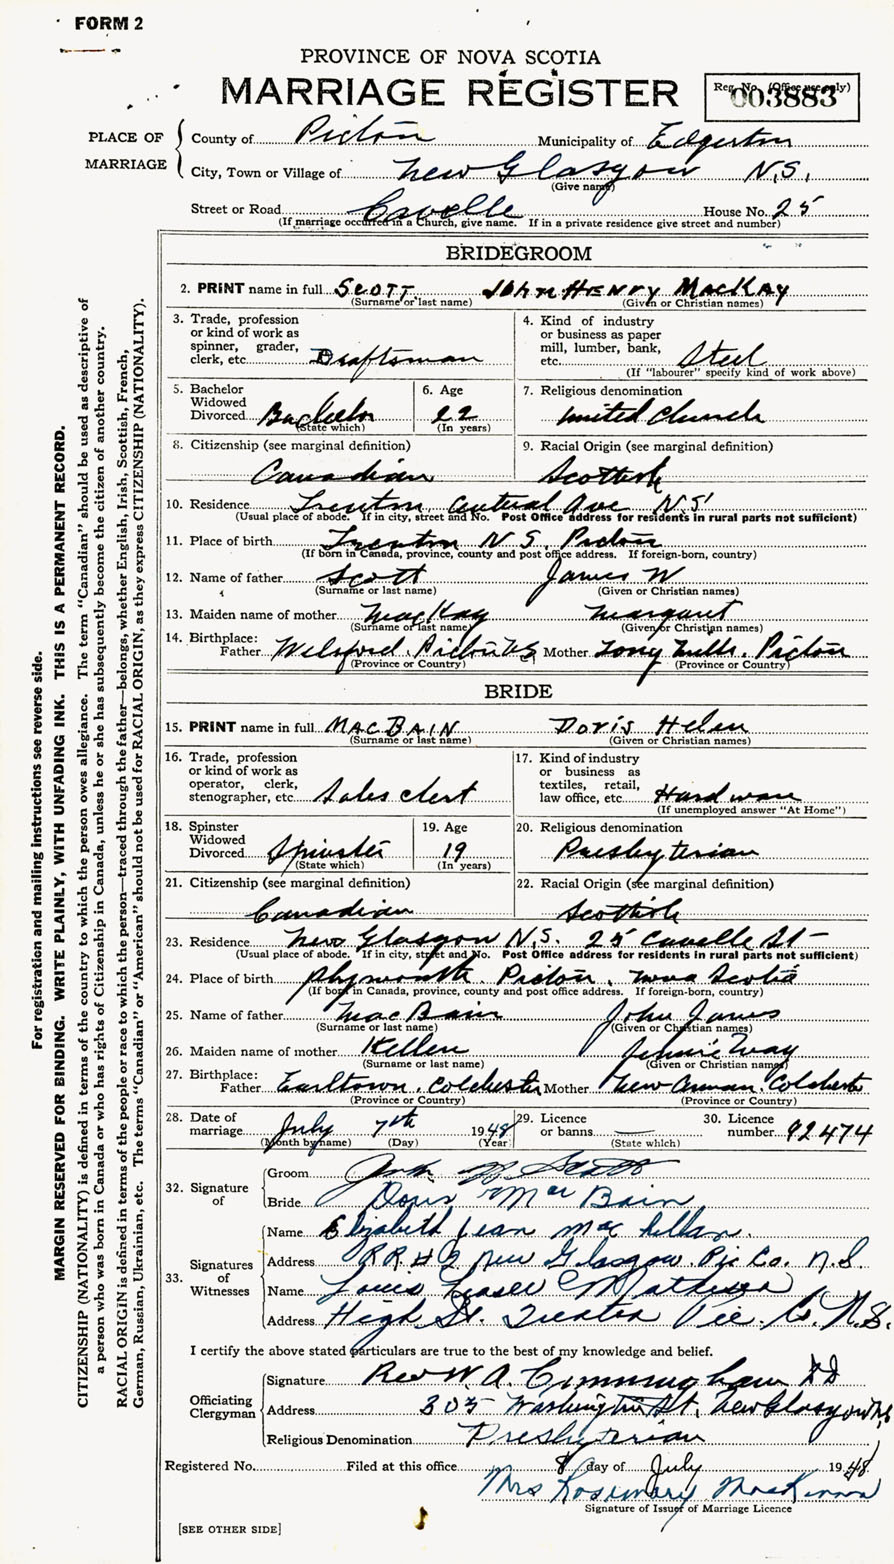 FORM 2
PROVINCE OF NOVA SCOTIA
MARRIAGE REGISTER
Reg. No. (Office use only)
003883
PLACE OF MARRIAGE
County of Pictou Municipality of Edgerton
City, Town or Village of New Glasgow N.S.
(Give name)
Street or Road Cavelle House No. 25
(If marriage occurred in a Church, give name. If in a private residence give street and number)
BRIDEGROOM
2. PRINT name in full SCOTT JOHN HENRY MACKAY
(Surname or last name) (Given or Christian names)
3. Trade, profession or kind of work as spinner, grader, clerk, etc. Draftsman
4. Kind of industry or business as paper mill, lumber, bank, etc. Steel
(If "labourer" specify kind of work above)
5. Bachelor Widowed Divorced Bachelor
(State which)
6. Age 22
(In years)
7. Religious denomination United Church
8. Citizenship (see marginal definition) Canadian
9. Racial Origin (see marginal definition) Scottish
10. Residence Trenton Central Ave N.S.
(Usual place of abode. If in city, street and No. Post Office address for residents in rural parts not sufficient)
11. Place of birth Trenton N.S. Pictou
(If born in Canada, province, county and post office address. If foreign-born, country)
12. Name of father Scott James W
(Surname or last name) (Given or Christian names)
13. Maiden name of mother MacKay Margaret
(Surname or last name) (Given or Christian names)
14. Birthplace: Father Pictou NS Mother Pictou
(Province or Country) (Province or Country)
BRIDE
15. PRINT name in full MACBAIN Doris Helen
(Surname or last name) (Given or Christian names)
16. Trade, profession or kind of work as operator, clerk, stenographer, etc. Sales clerk
17. Kind of industry or business as textiles, retail, law office, etc. Hardware
(If unemployed answer "At Home")
18. Spinster Widowed Divorced Spinster
(State which)
19. Age 19
(In years)
20. Religious denomination Presbyterian
21. Citizenship (see marginal definition) Canadian
22. Racial Origin (see marginal definition) Scottish
23. Residence New Glasgow N.S. 25 Cavelle St
(Usual place of abode. If in city, street and No. Post Office address for residents in rural parts not sufficient)
24. Place of birth Plymouth Pictou, Nova Scotia
(If born in Canada, province, county and post office address. If foreign-born, country)
25. Name of father MacBain John James
(Surname or last name) (Given or Christian names)
26. Maiden name of mother Jennie May
(Surname or last name) (Given or Christian names)
27. Birthplace: Father Earltown, Colchester Mother New Annan, Colchester
(Province or Country) (Province or Country)
28. Date of marriage July 7th 1948
(Month by name) (Day) (Year)
29. Licence or banns —
(State which)
30. Licence number 92474
32. Signature of
Groom John H Scott
Bride Doris MacBain
33. Signatures of Witnesses
Name Elizabeth Jean MacLellan.
Address RR # 2 New Glasgow. Pic Co. N.S.
Name Fraser Matheson
Address High St. Trenton Pic. Co. N.S.
I certify the above stated particulars are true to the best of my knowledge and belief.
Officiating Clergyman
Signature Rev W. A. Cunningham DD
Address 305 Washington St, New Glasgow NS
Religious Denomination Presbyterian
Registered No. Filed at this office 8 day of July 1948
Mrs Rosemary MacKinnon
Signature of Issuer of Marriage Licence
[SEE OTHER SIDE]
For registration and mailing instructions see reverse side.
MARGIN RESERVED FOR BINDING. WRITE PLAINLY, WITH UNFADING INK. THIS IS A PERMANENT RECORD.
CITIZENSHIP (NATIONALITY) is defined in terms of the country to which the person owes allegiance. The term "Canadian" should be used as descriptive of
a person who was born in Canada or who has rights of Citizenship in Canada, unless he or she has subsequently become the citizen of another country.
RACIAL ORIGIN is defined in terms of the people or race to which the person—traced through the father—belongs, whether English, Irish, Scottish, French,
German, Russian, Ukrainian, etc. The terms "Canadian" or "American" should not be used for RACIAL ORIGIN, as they express CITIZENSHIP (NATIONALITY).